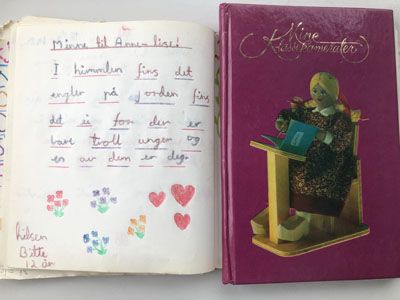 Minne til Anne-lise!
I himmlen fins det
engler på jorden fins
det ei for der er
bare troll unger og
en av dem er deg.
hilsen
Bitte
12 år
Mine
Skolekamerater